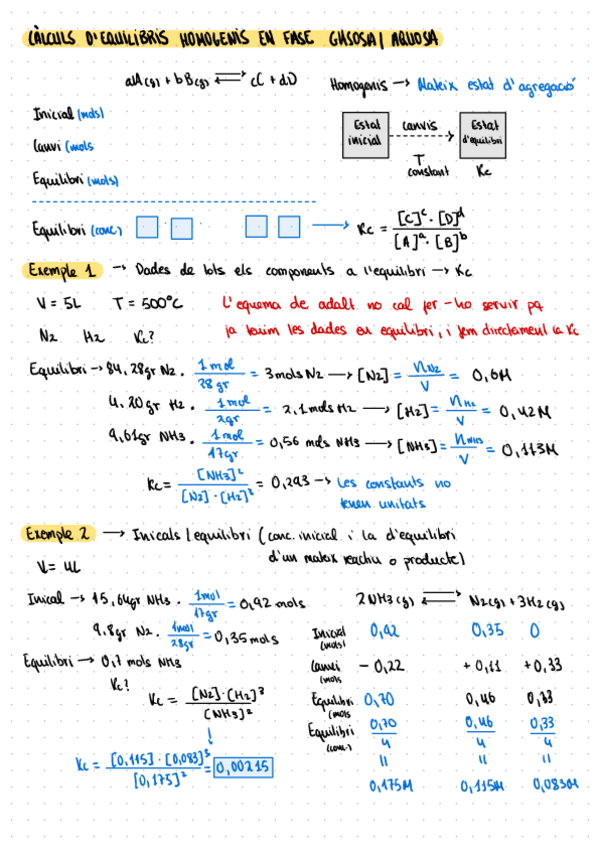 CÀLCULS D'EQUILIBRIS HOMOGENIS EN FASE GASOSA/ AQUOSA
aA(g) + bB(g) ⇌ cC + dD
Homogenis → Mateix estat d'agregació
Inicial (mols)
Canvi (mols
Equilibri (mols)
Estat inicial
canvis
T constant
Estat d'equilibri
Kc
Equilibri (conc.)
Kc = [C]^c · [D]^d / [A]^a · [B]^b
Exemple 1 → Dades de tots els components a l'equilibri → Kc
V = 5L T = 500°C
L'equema de adalt no cal fer-ho servir pq
N2 H2 Kc?
ja tenim les dades en equilibri, i fem directament la Kc
Equilibri → 84,28gr N2 · 1mol / 28gr = 3mols N2 → [N2] = nN2 / V = 0,6M
4,20gr H2 · 1mol / 2gr = 2,1mols H2 → [H2] = nH2 / V = 0,42M
9,61gr NH3 · 1mol / 17gr = 0,56 mols NH3 → [NH3] = nNH3 / V = 0,113M
Kc = [NH3]² / [N2] · [H2]³ = 0,293 → Les constants no
tenen unitats
Exemple 2 → Inicals/equilibri (conc. inicial i la d'equilibri
d'un mateix reactiu o producte)
V = 4L
Inical → 15,64gr NH3 · 1mol / 17gr = 0,92 mols
9,8gr N2 · 1mol / 28gr = 0,35 mols
Equilibri → 0,7 mols NH3
Kc?
Kc = [N2] · [H2]³ / [NH3]²
↓
Kc = [0,115] · [0,083]³ / [0,175]² = 0,00215
2NH3(g) ⇌ N2(g) + 3H2(g)
Inicial (mols) 0,92 0,35 0
Canvi (mols - 0,22 + 0,11 + 0,33
Equilibri (mols 0,70 0,46 0,33
Equilibri (conc.) 0,70 / 4 0,46 / 4 0,33 / 4
= = =
0,175M 0,115M 0,083M